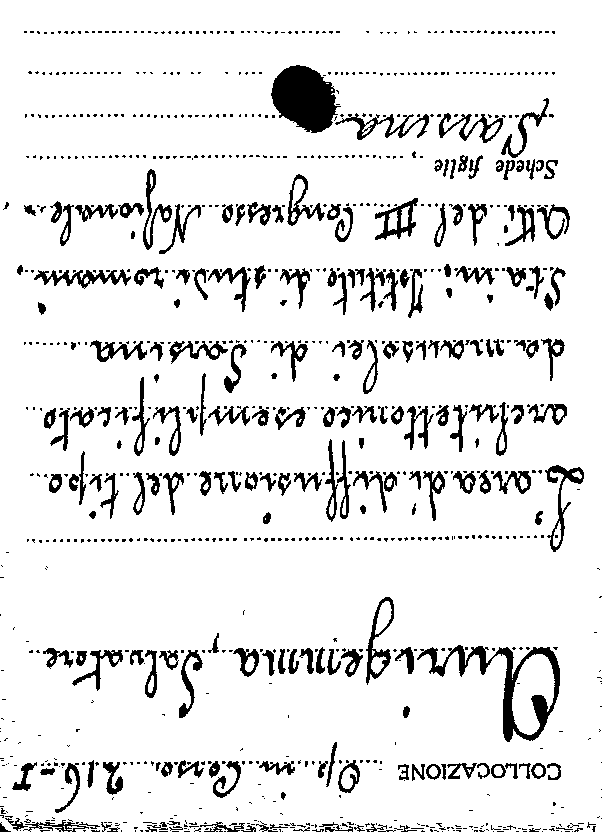 COLLOCAZIONE Op. in Corso. 216-I
Aurigemma, Salvatore
L'area di diffusione del tipo
architettonico esemplificato
da mausolei di Sarsina.
Sta in: Istituto di studi romani,
Atti del III Congresso Nazionale..,
Schede figlie
Sarsina